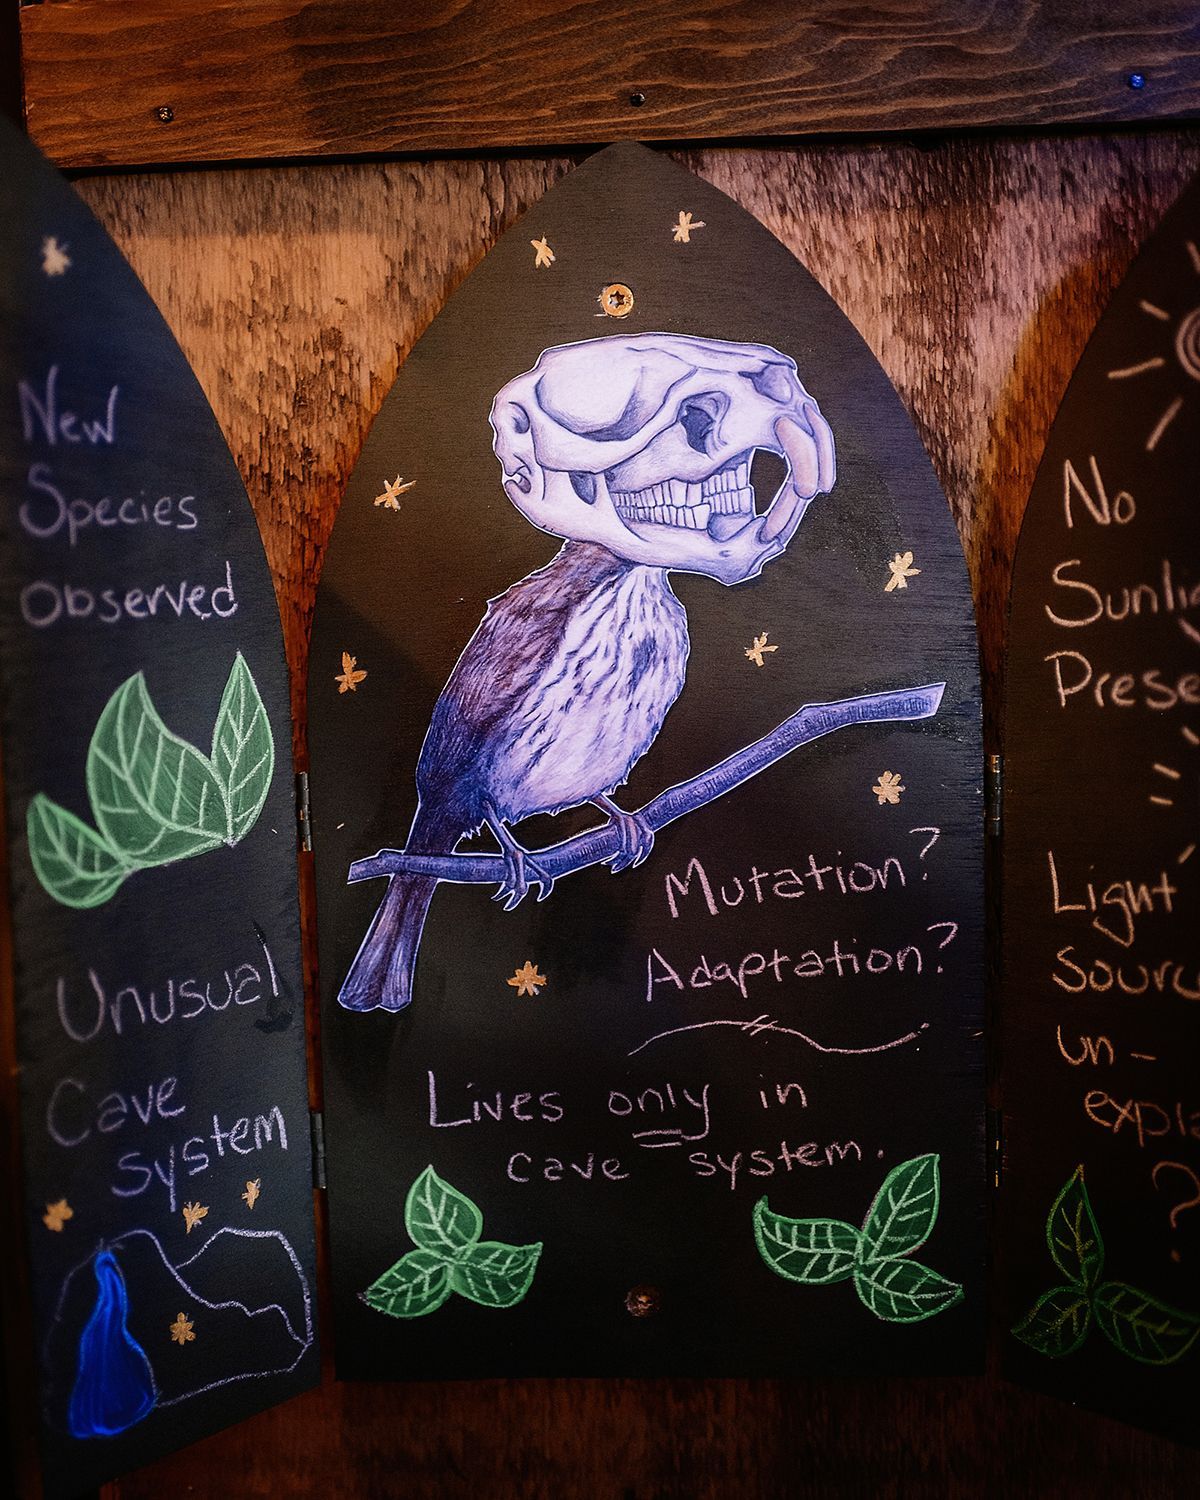 New
Species
Observed
Unusual
Cave
System
Mutation?
Adaptation?
Lives only in
cave system.
No
Light
un-
?